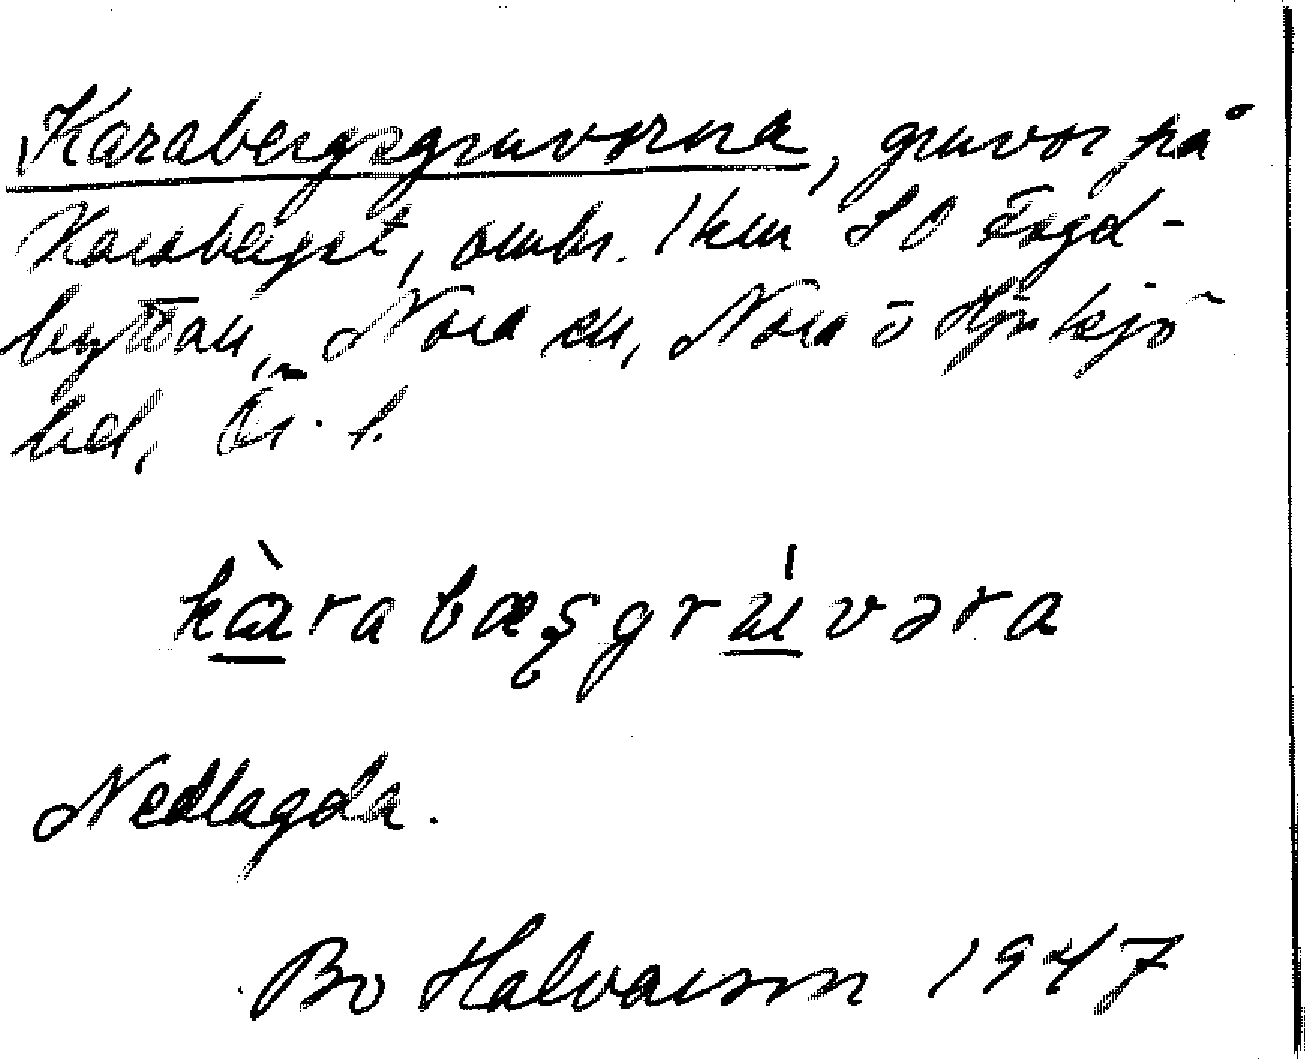 Karabergsgruvorna, gruvor på
Karaberget, omkr. 1 km SO Fogd-
hyttan, Nora sn, Nora o Hjulsjö
hd, Ör. l.
kàrabæşgrúvəra
Nedlagda.
Bo Halvarson 1947